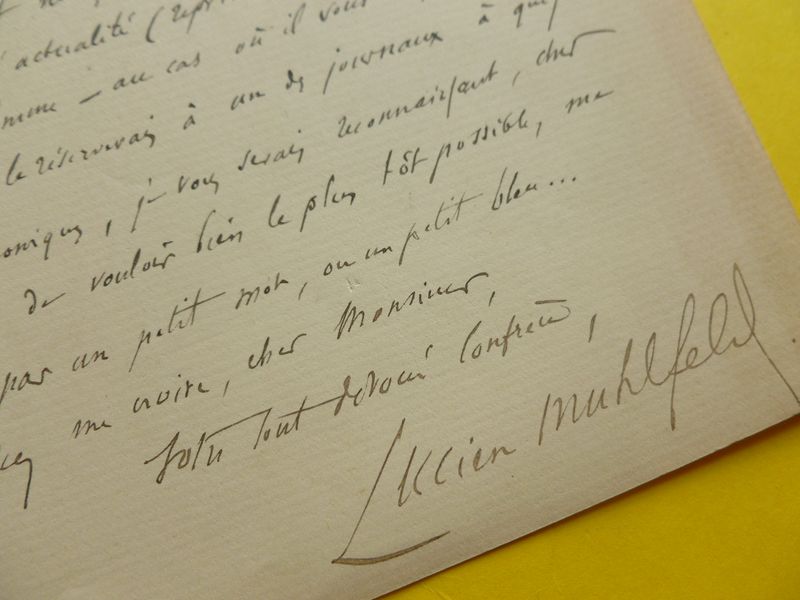 actualité (repr
— au cas où il vous
le réserverais à un des journaux à qu
oniques, je vous serais reconnaissant, cher
de vouloir bien le plus tôt possible, me
par un petit mot, ou un petit bleu...
me croire, cher Monsieur,
Votre tout dévoué confrère,
Lucien Muhlfeld